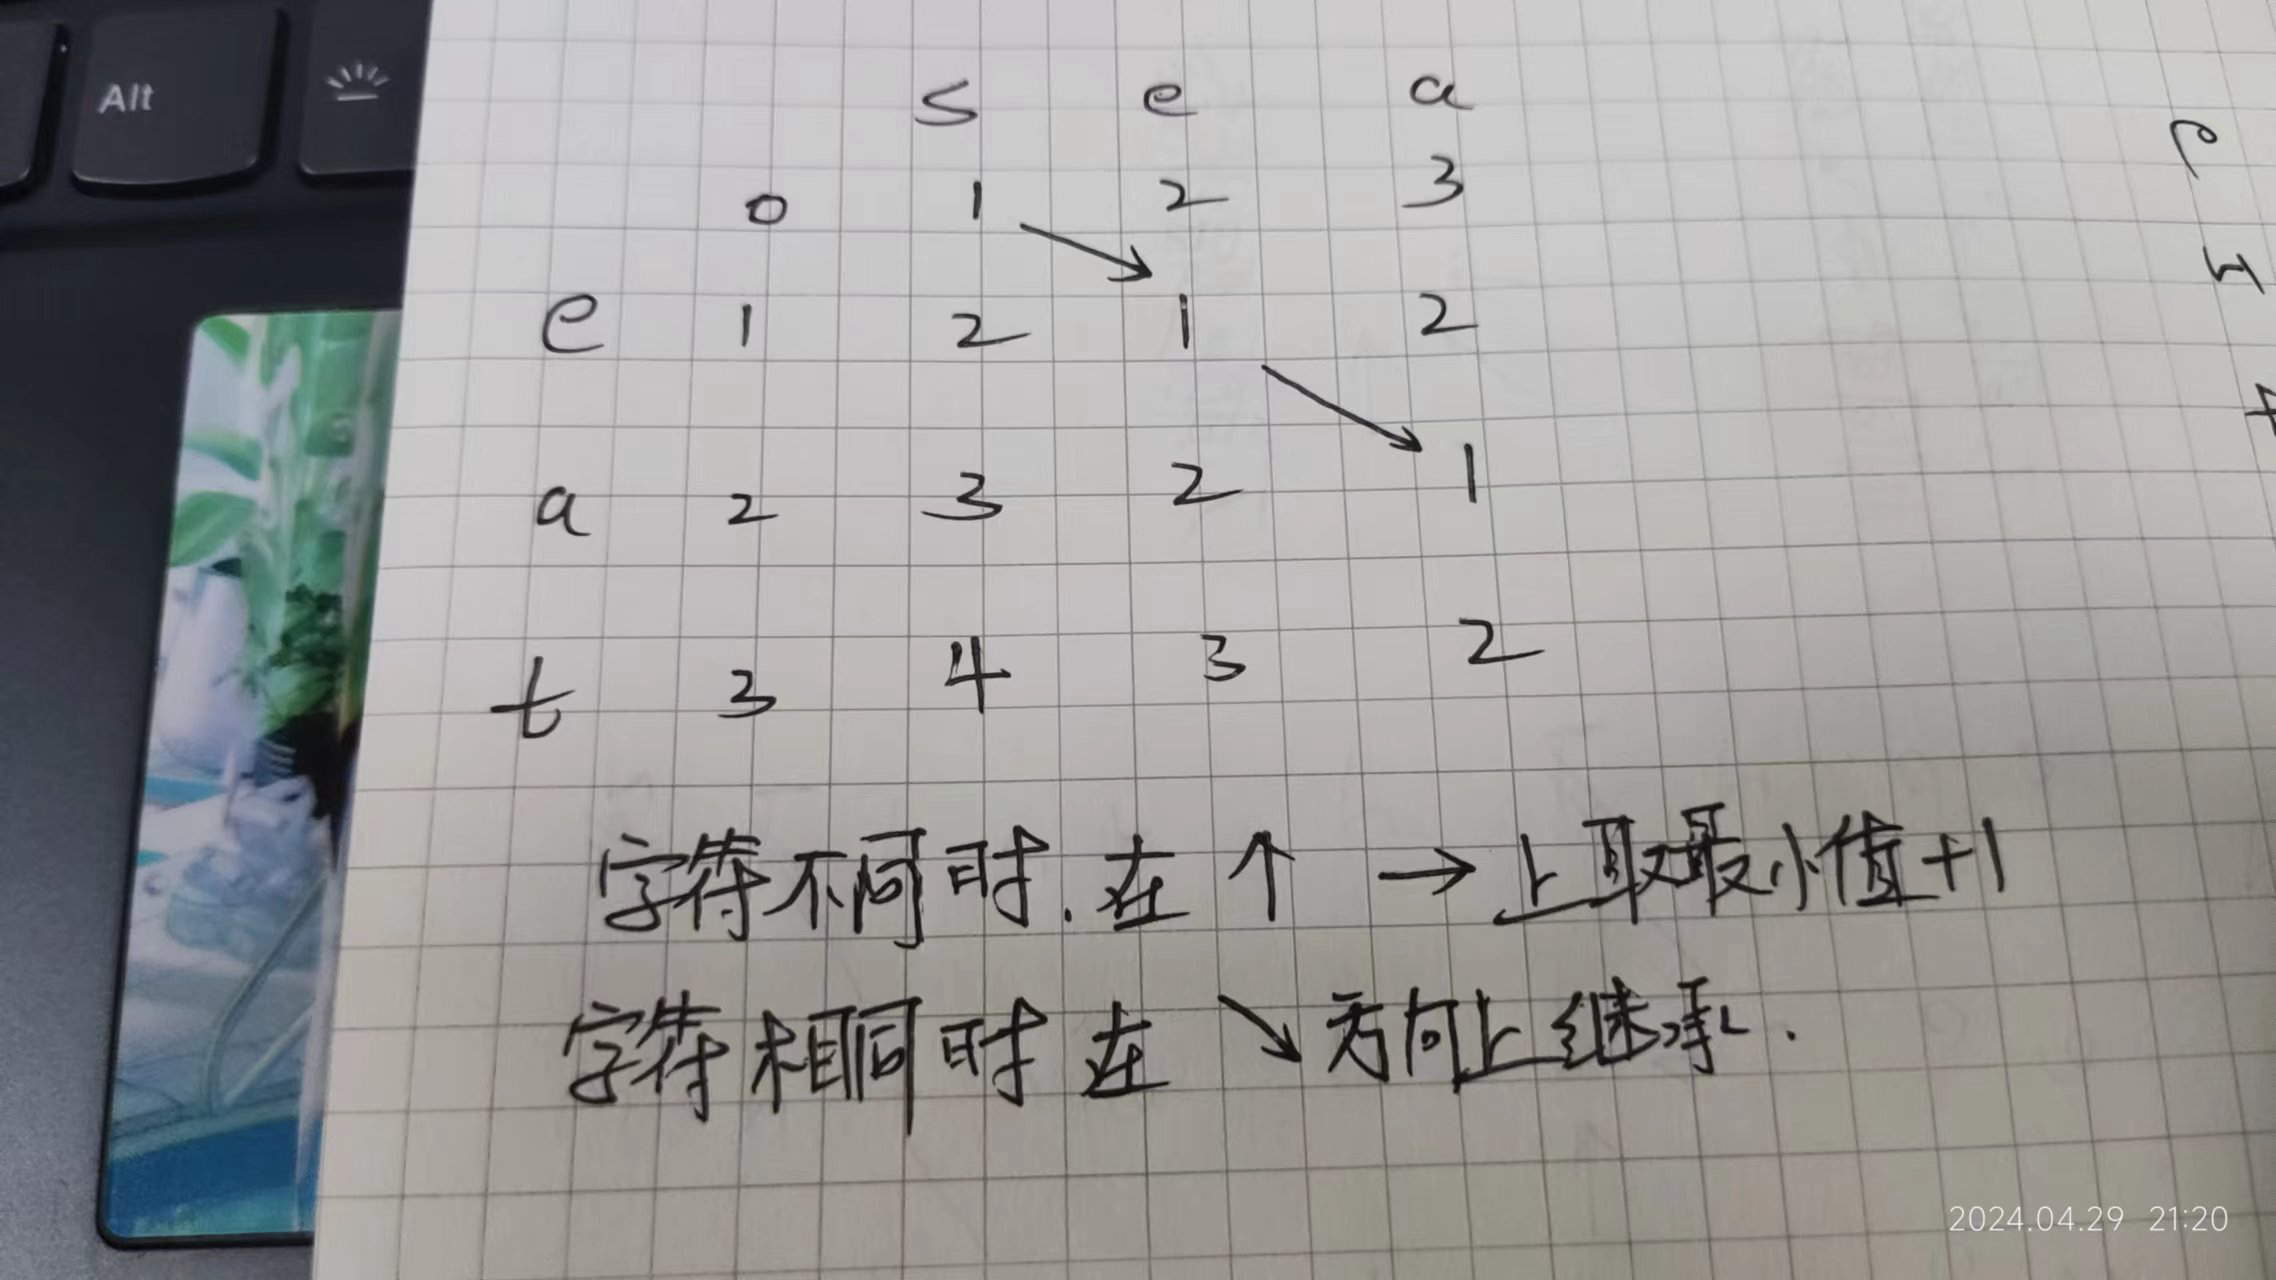 Alt
s e a
0 1 2 3
e 1 2 1 2
a 2 3 2 1
t 3 4 3 2
字符不同时.在↑ →上取最小值+1
字符相同时在↘方向上继承.
2024.04.29 21:20